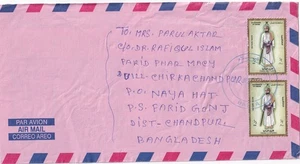 TO: MRS. PARUL AKTAR
C/O. DR. RAFIQUL ISLAM
FARID PHARMACY
VILL- CHIRKACHANDPUR
P.O. NAYA HAT
P.S. FARID GONJ
DIST- CHANDPUR,
BANGLADESH
PAR AVION
AIR MAIL
CORREO AEREO